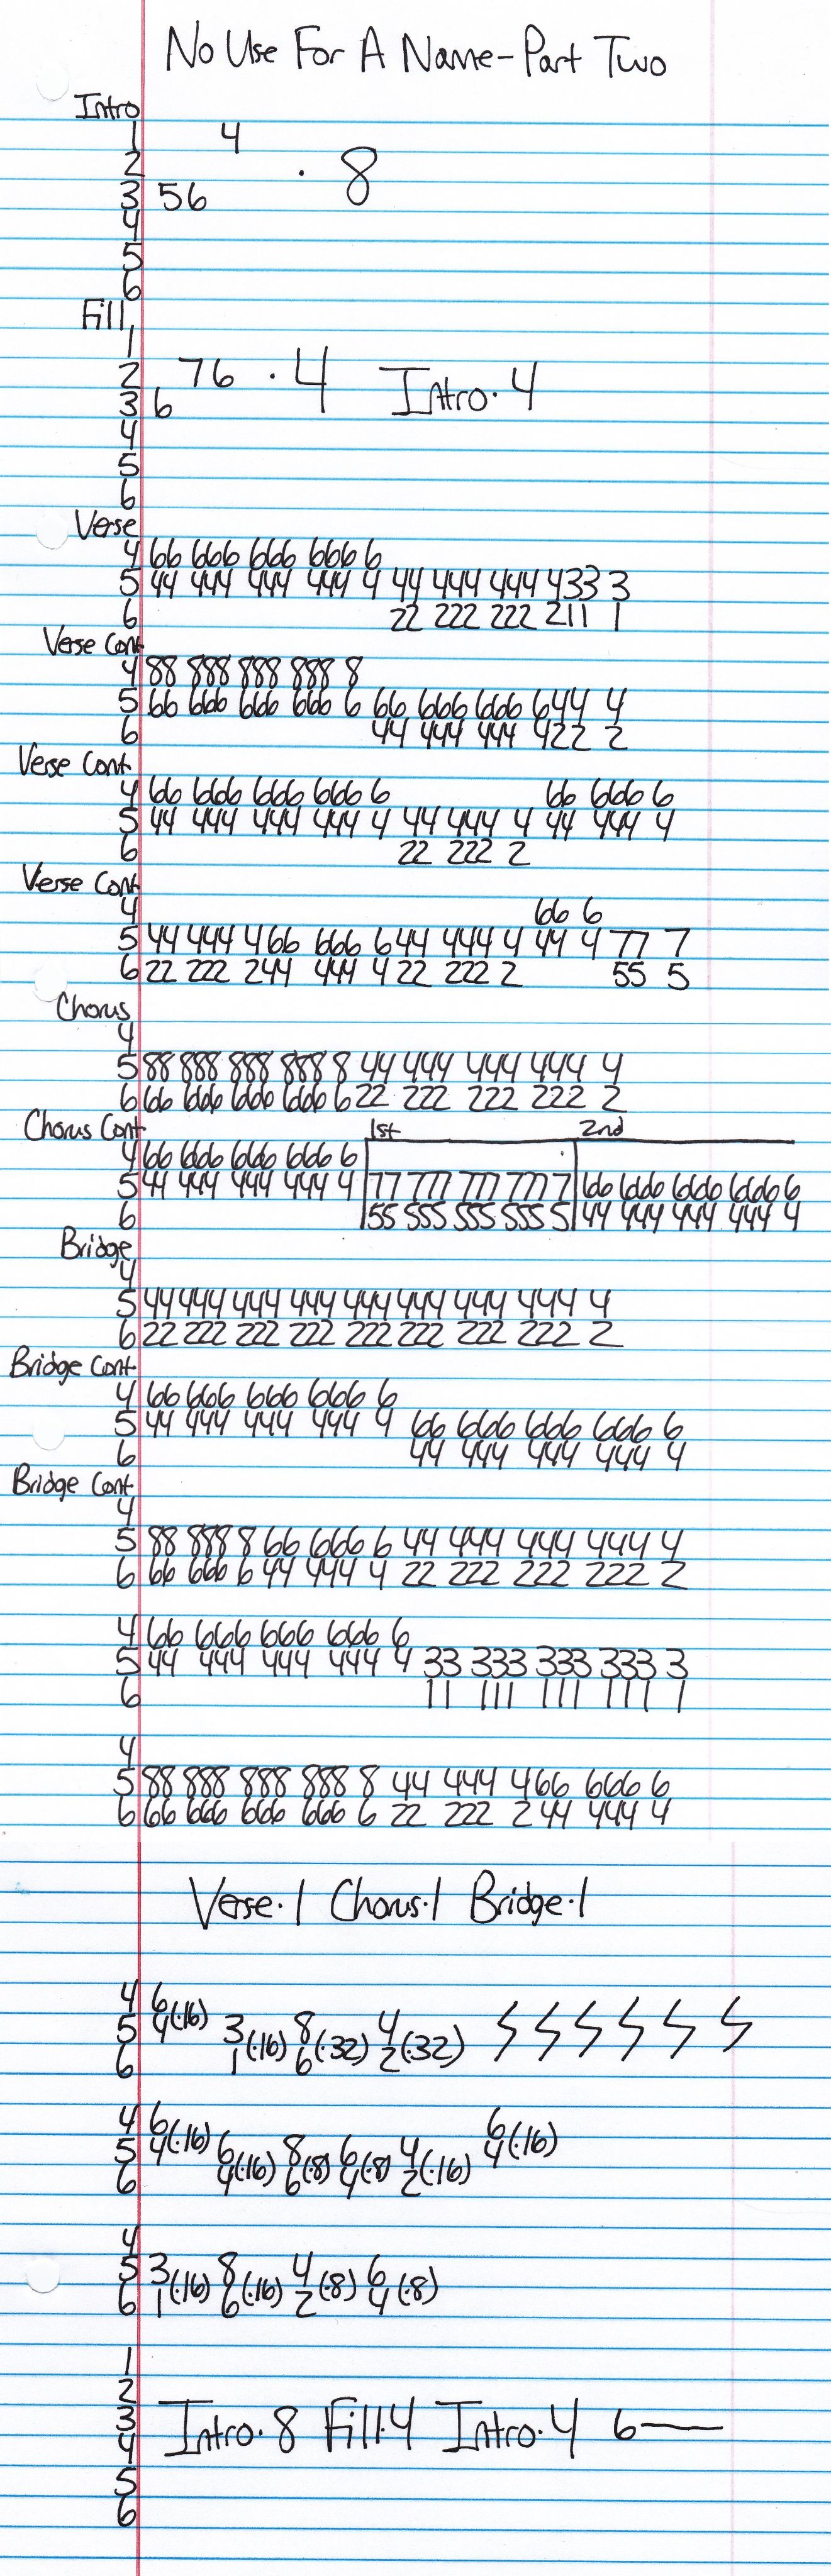 No Use For A Name-Part Two
Intro
1 4
2 · 8
3 56
4
5
6
Fill
1
2 76 · 4 Intro·4
3 6
4
5
6
Verse
4 66 666 666 666 6
5 44 444 444 444 4 44 444 444 433 3
6 22 222 222 211 1
Verse Cont
4 88 888 888 888 8
5 66 666 666 666 6 66 666 666 644 4
6 44 444 444 422 2
Verse Cont
4 66 666 666 666 6 66 666 6
5 44 444 444 444 4 44 444 4 44 444 4
6 22 222 2
Verse Cont
4 66 6
5 44 444 466 666 644 444 4 44 4 77 7
6 22 222 244 444 422 222 2 55 5
Chorus
4
5 88 888 888 888 8 44 444 444 444 4
6 66 666 666 666 6 22 222 222 222 2
Chorus Cont 1st 2nd
4 66 666 666 666 6
5 44 444 444 444 4 77 777 777 777 7 66 666 666 666 6
6 55 555 555 555 5 44 444 444 444 4
Bridge
4
5 44 444 444 444 444 444 444 444 4
6 22 222 222 222 222 222 222 222 2
Bridge Cont
4 66 666 666 666 6
5 44 444 444 444 4 66 666 666 666 6
6 44 444 444 444 4
Bridge Cont
4
5 88 888 8 66 666 6 44 444 444 444 4
6 66 666 6 44 444 4 22 222 222 222 2
4 66 666 666 666 6
5 44 444 444 444 4 33 333 333 333 3
6 11 111 111 111 1
4
5 88 888 888 888 8 44 444 466 666 6
6 66 666 666 666 6 22 222 244 444 4
Verse·1 Chorus·1 Bridge·1
4 6
5 4(·16) 3 8 4
6 1(·16) 6(·32) 2(·32)
4 6 6
5 4(·16) 6 8 6 4 4(·16)
6 4(·16) 6(·8) 4(·8) 2(·16)
4
5 3 8 4 6
6 1(·16) 6(·16) 2(·8) 4(·8)
1
2
3 Intro·8 Fill·4 Intro·4 6
4
5
6